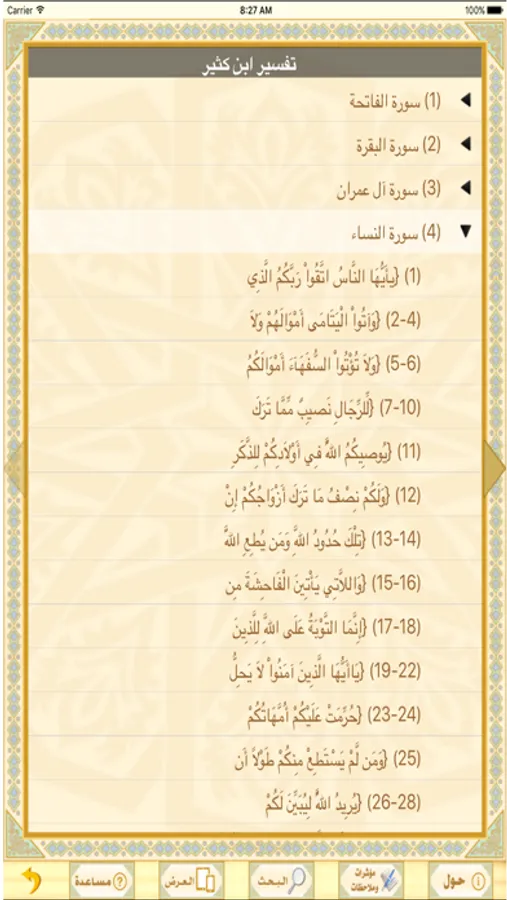 Carrier 8:27 AM 100%
تفسير ابن كثير
(1) سورة الفاتحة
(2) سورة البقرة
(3) سورة آل عمران
(4) سورة النساء
(1) {يأَيُّهَا النَّاسُ اتَّقُواْ رَبَّكُمُ الَّذِي
(2-4) {وَآتُواْ الْيَتَامَى أَمْوَالَهُمْ وَلاَ
(5-6) {وَلاَ تُؤْتُواْ السُّفَهَآءَ أَمْوَالَكُمُ
(7-10) {لِّلرِّجَالِ نَصِيبٌ مِّمَّا تَرَكَ
(11) {يُوصِيكُمُ اللَّهُ فِي أَوْلاَدِكُمْ لِلذَّكَرِ
(12) {وَلَكُمْ نِصْفُ مَا تَرَكَ أَزْوَاجُكُمْ إِنْ
(13-14) {تِلْكَ حُدُودُ اللَّهِ وَمَن يُطِعِ اللَّهَ
(15-16) {وَاللاَّتِي يَأْتِينَ الْفَاحِشَةَ مِن
(17-18) {إِنَّمَا التَّوْبَةُ عَلَى اللَّهِ لِلَّذِينَ
(19-22) {يَاأَيُّهَا الَّذِينَ آمَنُواْ لاَ يَحِلُّ
(23-24) {حُرِّمَتْ عَلَيْكُمْ أُمَّهَاتُكُمْ
(25) {وَمَن لَّمْ يَسْتَطِعْ مِنكُمْ طَوْلاً أَن
(26-28) {يُرِيدُ اللَّهُ لِيُبَيِّنَ لَكُمْ
حول
مؤشرات
وملاحظات
البحث
العرض
مساعدة